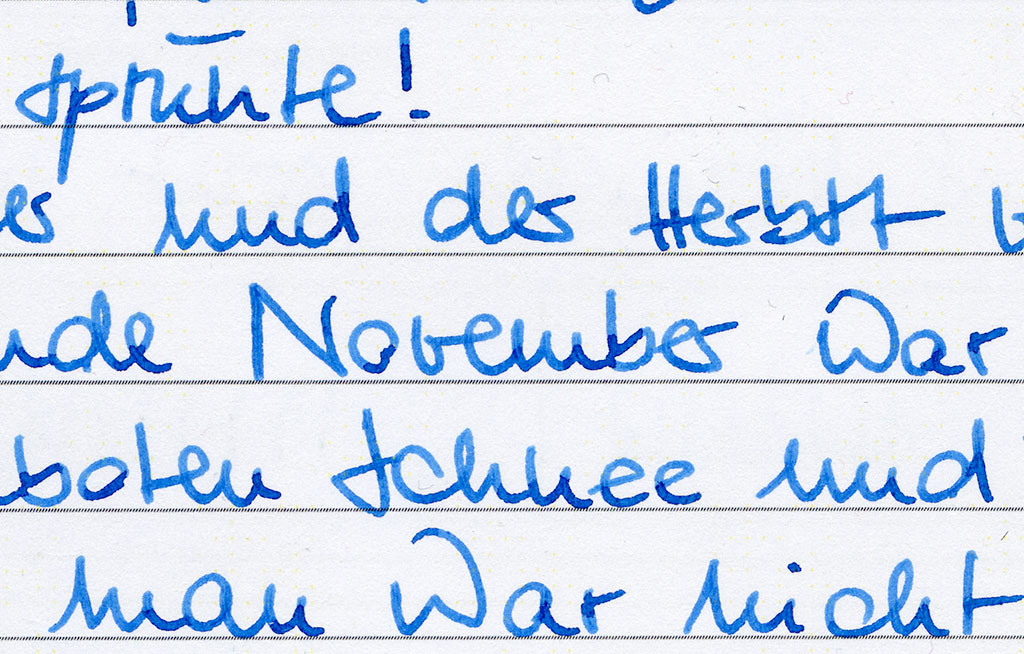 sprühte!
und der Herbst
November war
boten Schnee und
man war nicht